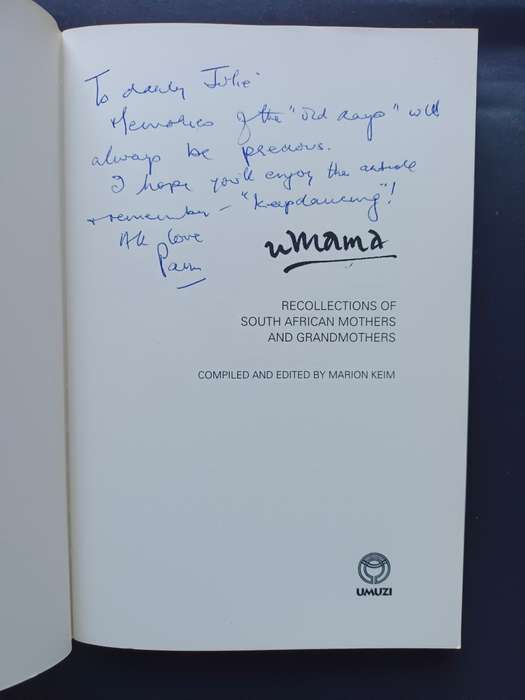 To Julie
Memories of the "old days" will
always be precious.
I hope you'll enjoy the article
+ remember - "keep dancing"!
All love
Pam
uMama
RECOLLECTIONS OF
SOUTH AFRICAN MOTHERS
AND GRANDMOTHERS
COMPILED AND EDITED BY MARION KEIM
UMUZI